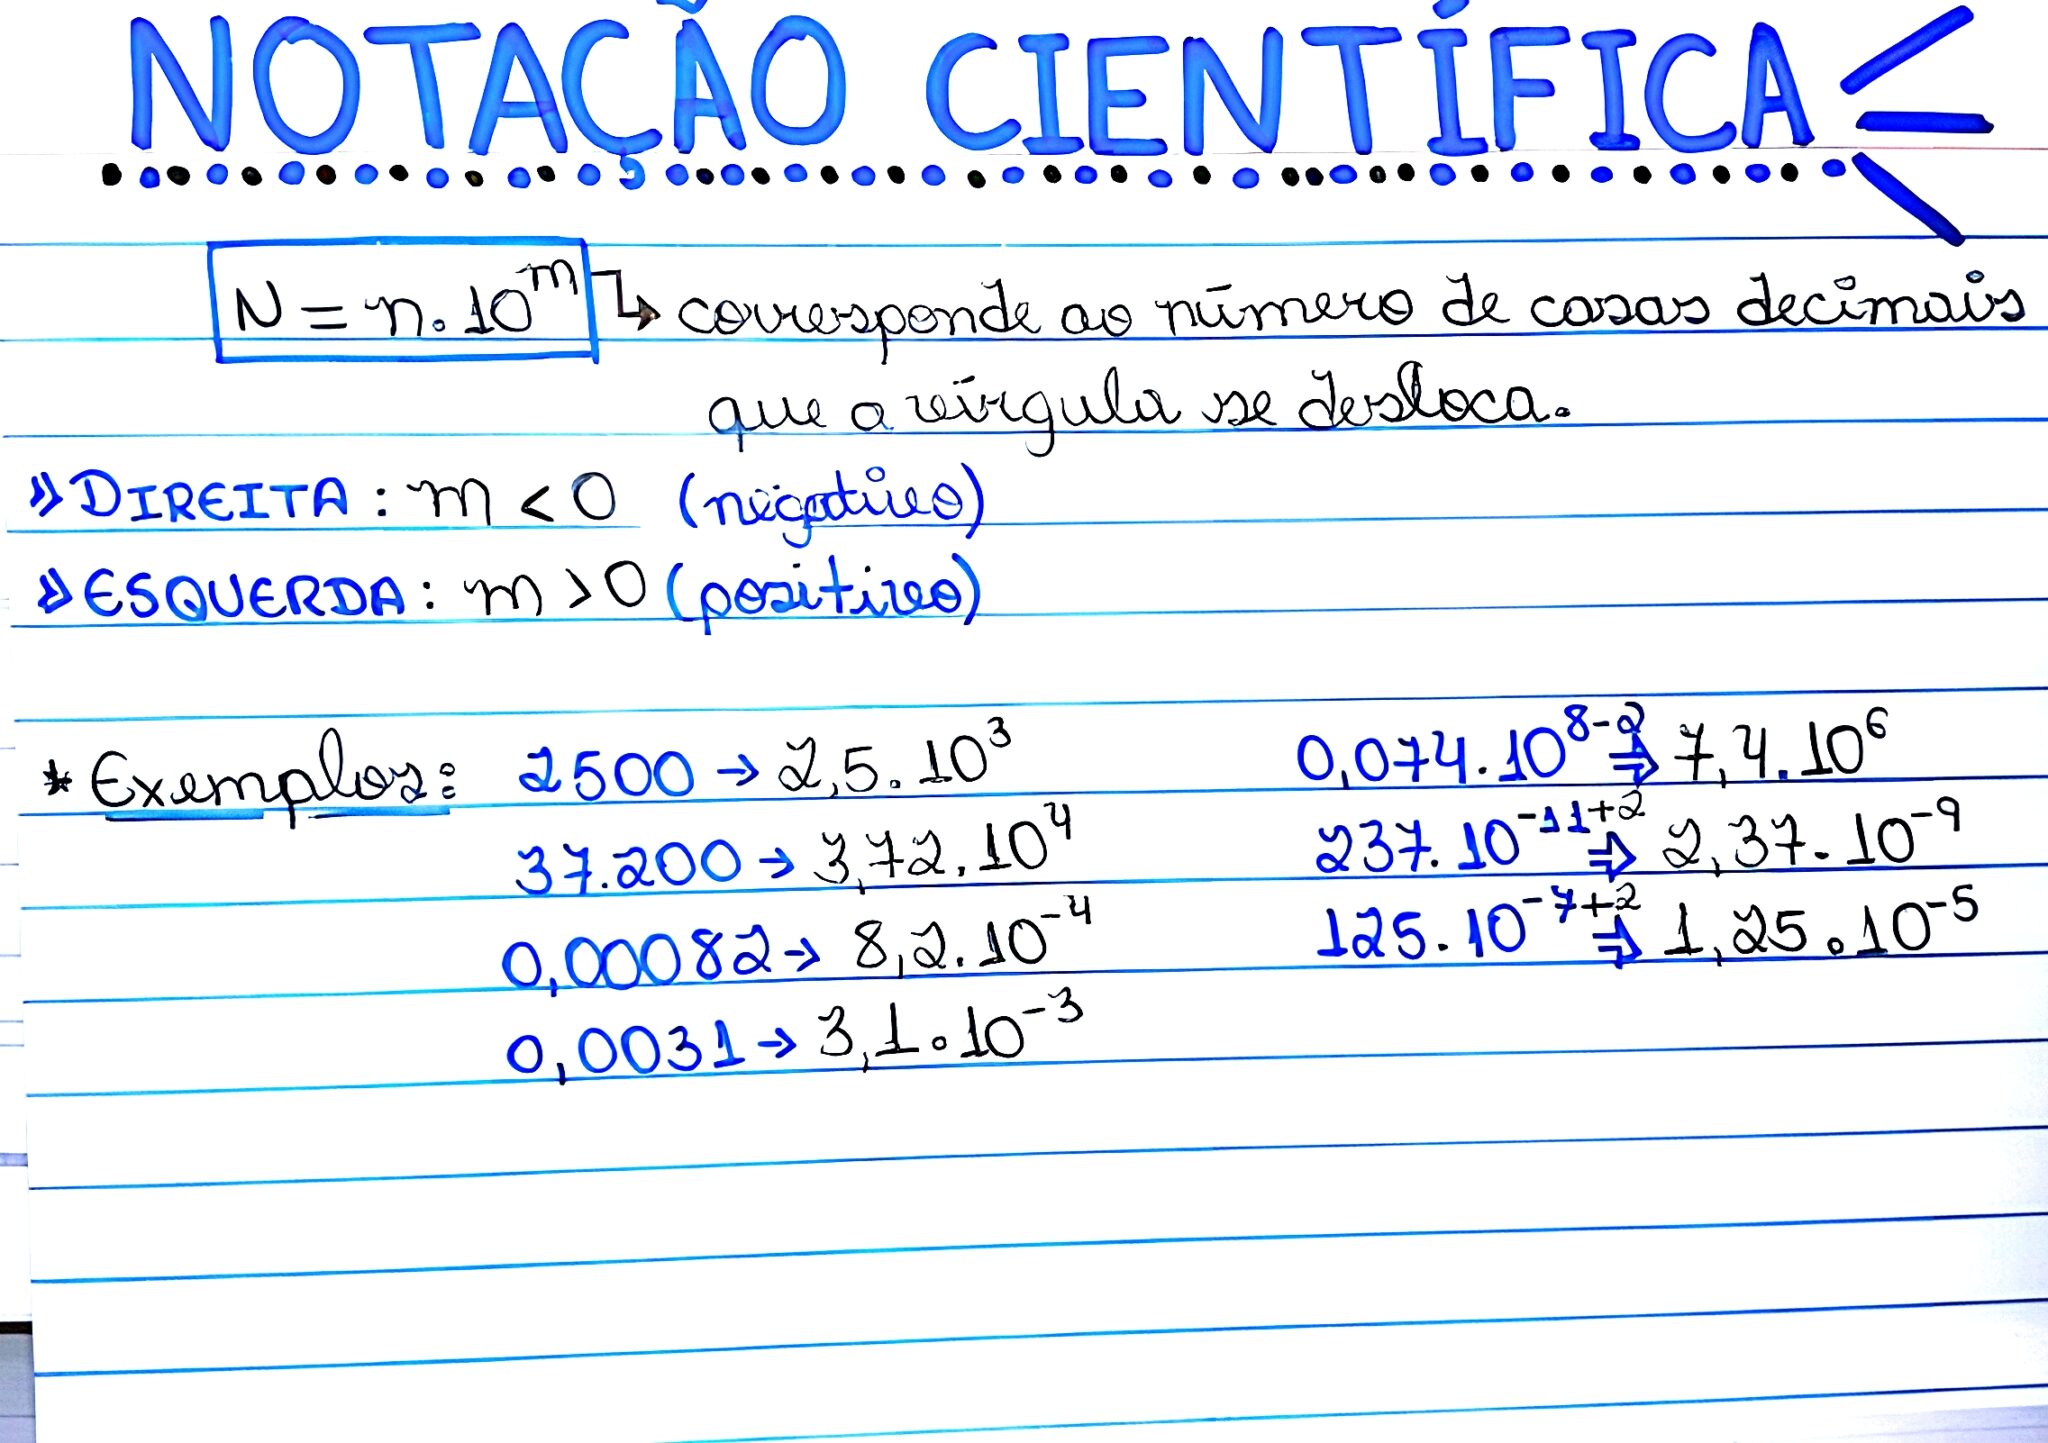 NOTAÇÃO CIENTÍFICA
N = n. 10^m ↳ corresponde ao número de casas decimais
que a vírgula se desloca.
» DIREITA : m < 0 (negativo)
» ESQUERDA : m > 0 (positivo)
* Exemplos: 2500 → 2,5. 10³ 0,074.10⁸⁻² ⇒ 7,4.10⁶
37.200 → 3,72.10⁴ 237. 10⁻¹¹⁺² ⇒ 2,37. 10⁻⁹
0,00082 → 8,2.10⁻⁴ 125.10⁻⁷⁺² ⇒ 1,25.10⁻⁵
0,0031 → 3,1.10⁻³